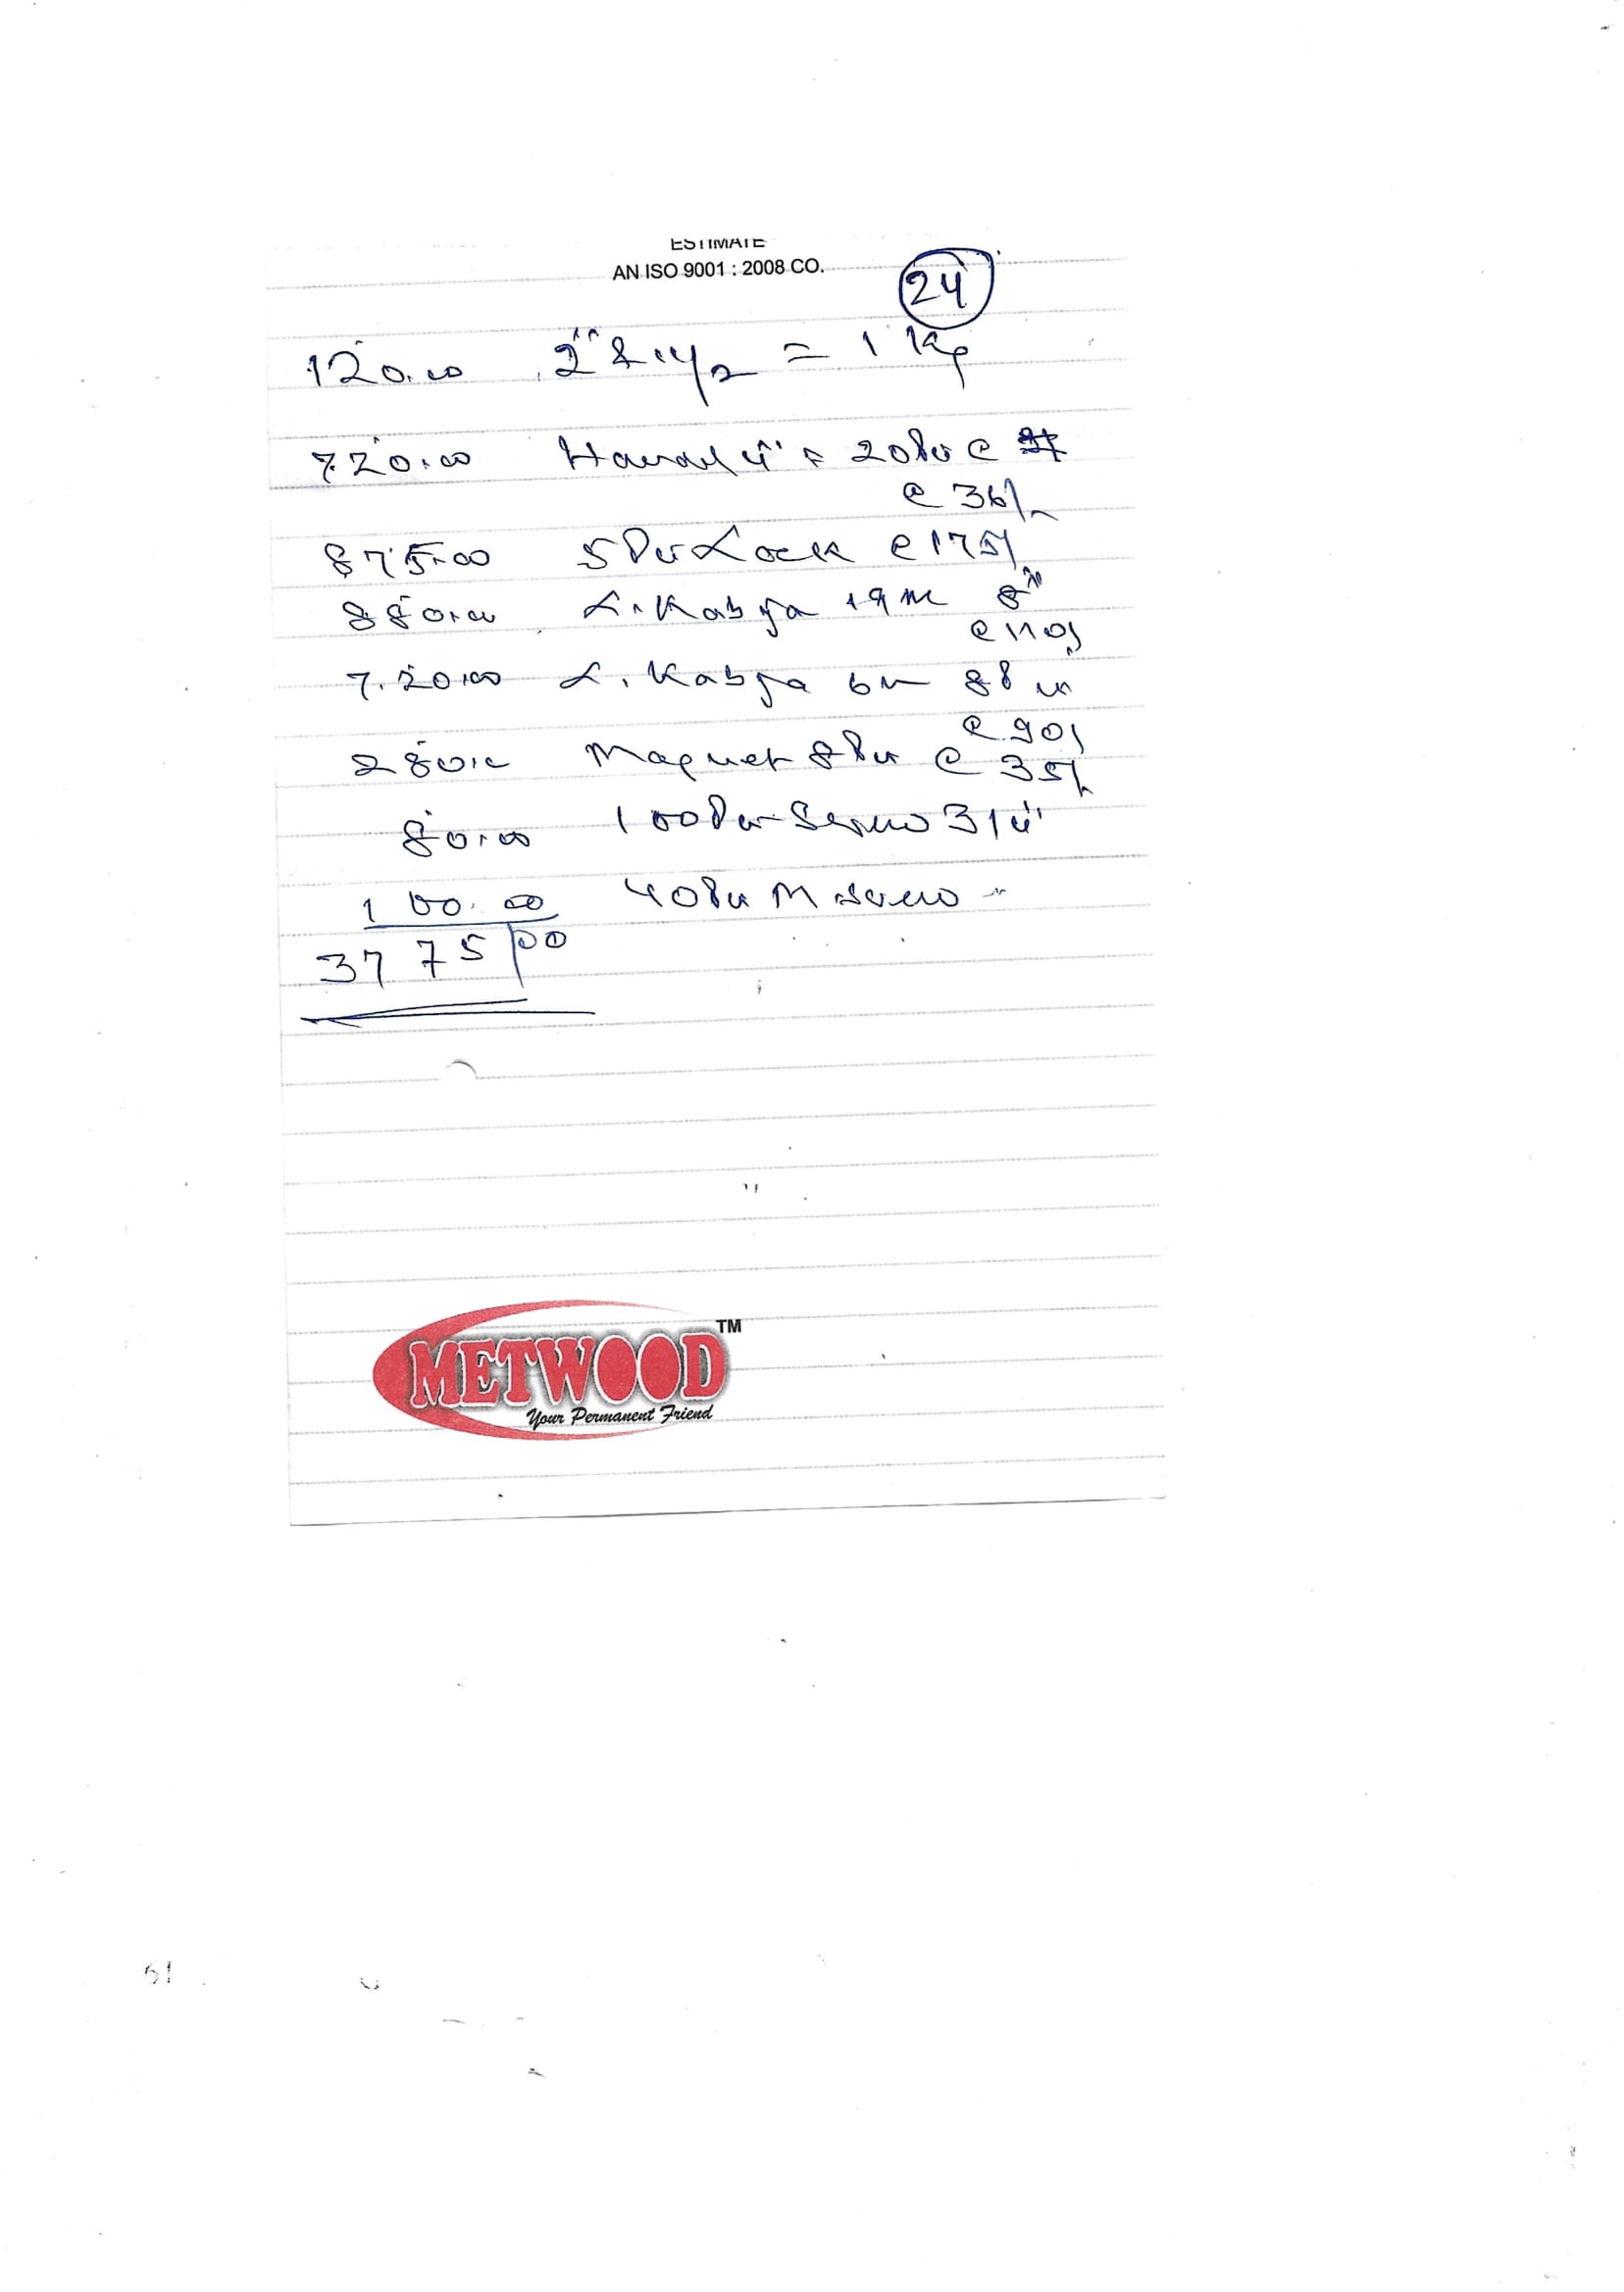 ESTIMATE
AN ISO 9001 : 2008 CO.
24
120.00 2" & 1 1/2 = 1 Kg
720.00 4" = 20 Pc @
@ 36/-
875.00 5 Pc Lock @ 175/
880.00 L. Kabja 19 m 8 Pc
@ 110/
720.00 L. Kabja 6 m 8 Pc
@ 90/
280.00 Magnet 8 Pc @ 35/-
80.00 100 Pc Screw 3/4"
100.00 40 Pc M Screw
3775/00
METWOOD TM
Your Permanent Friend